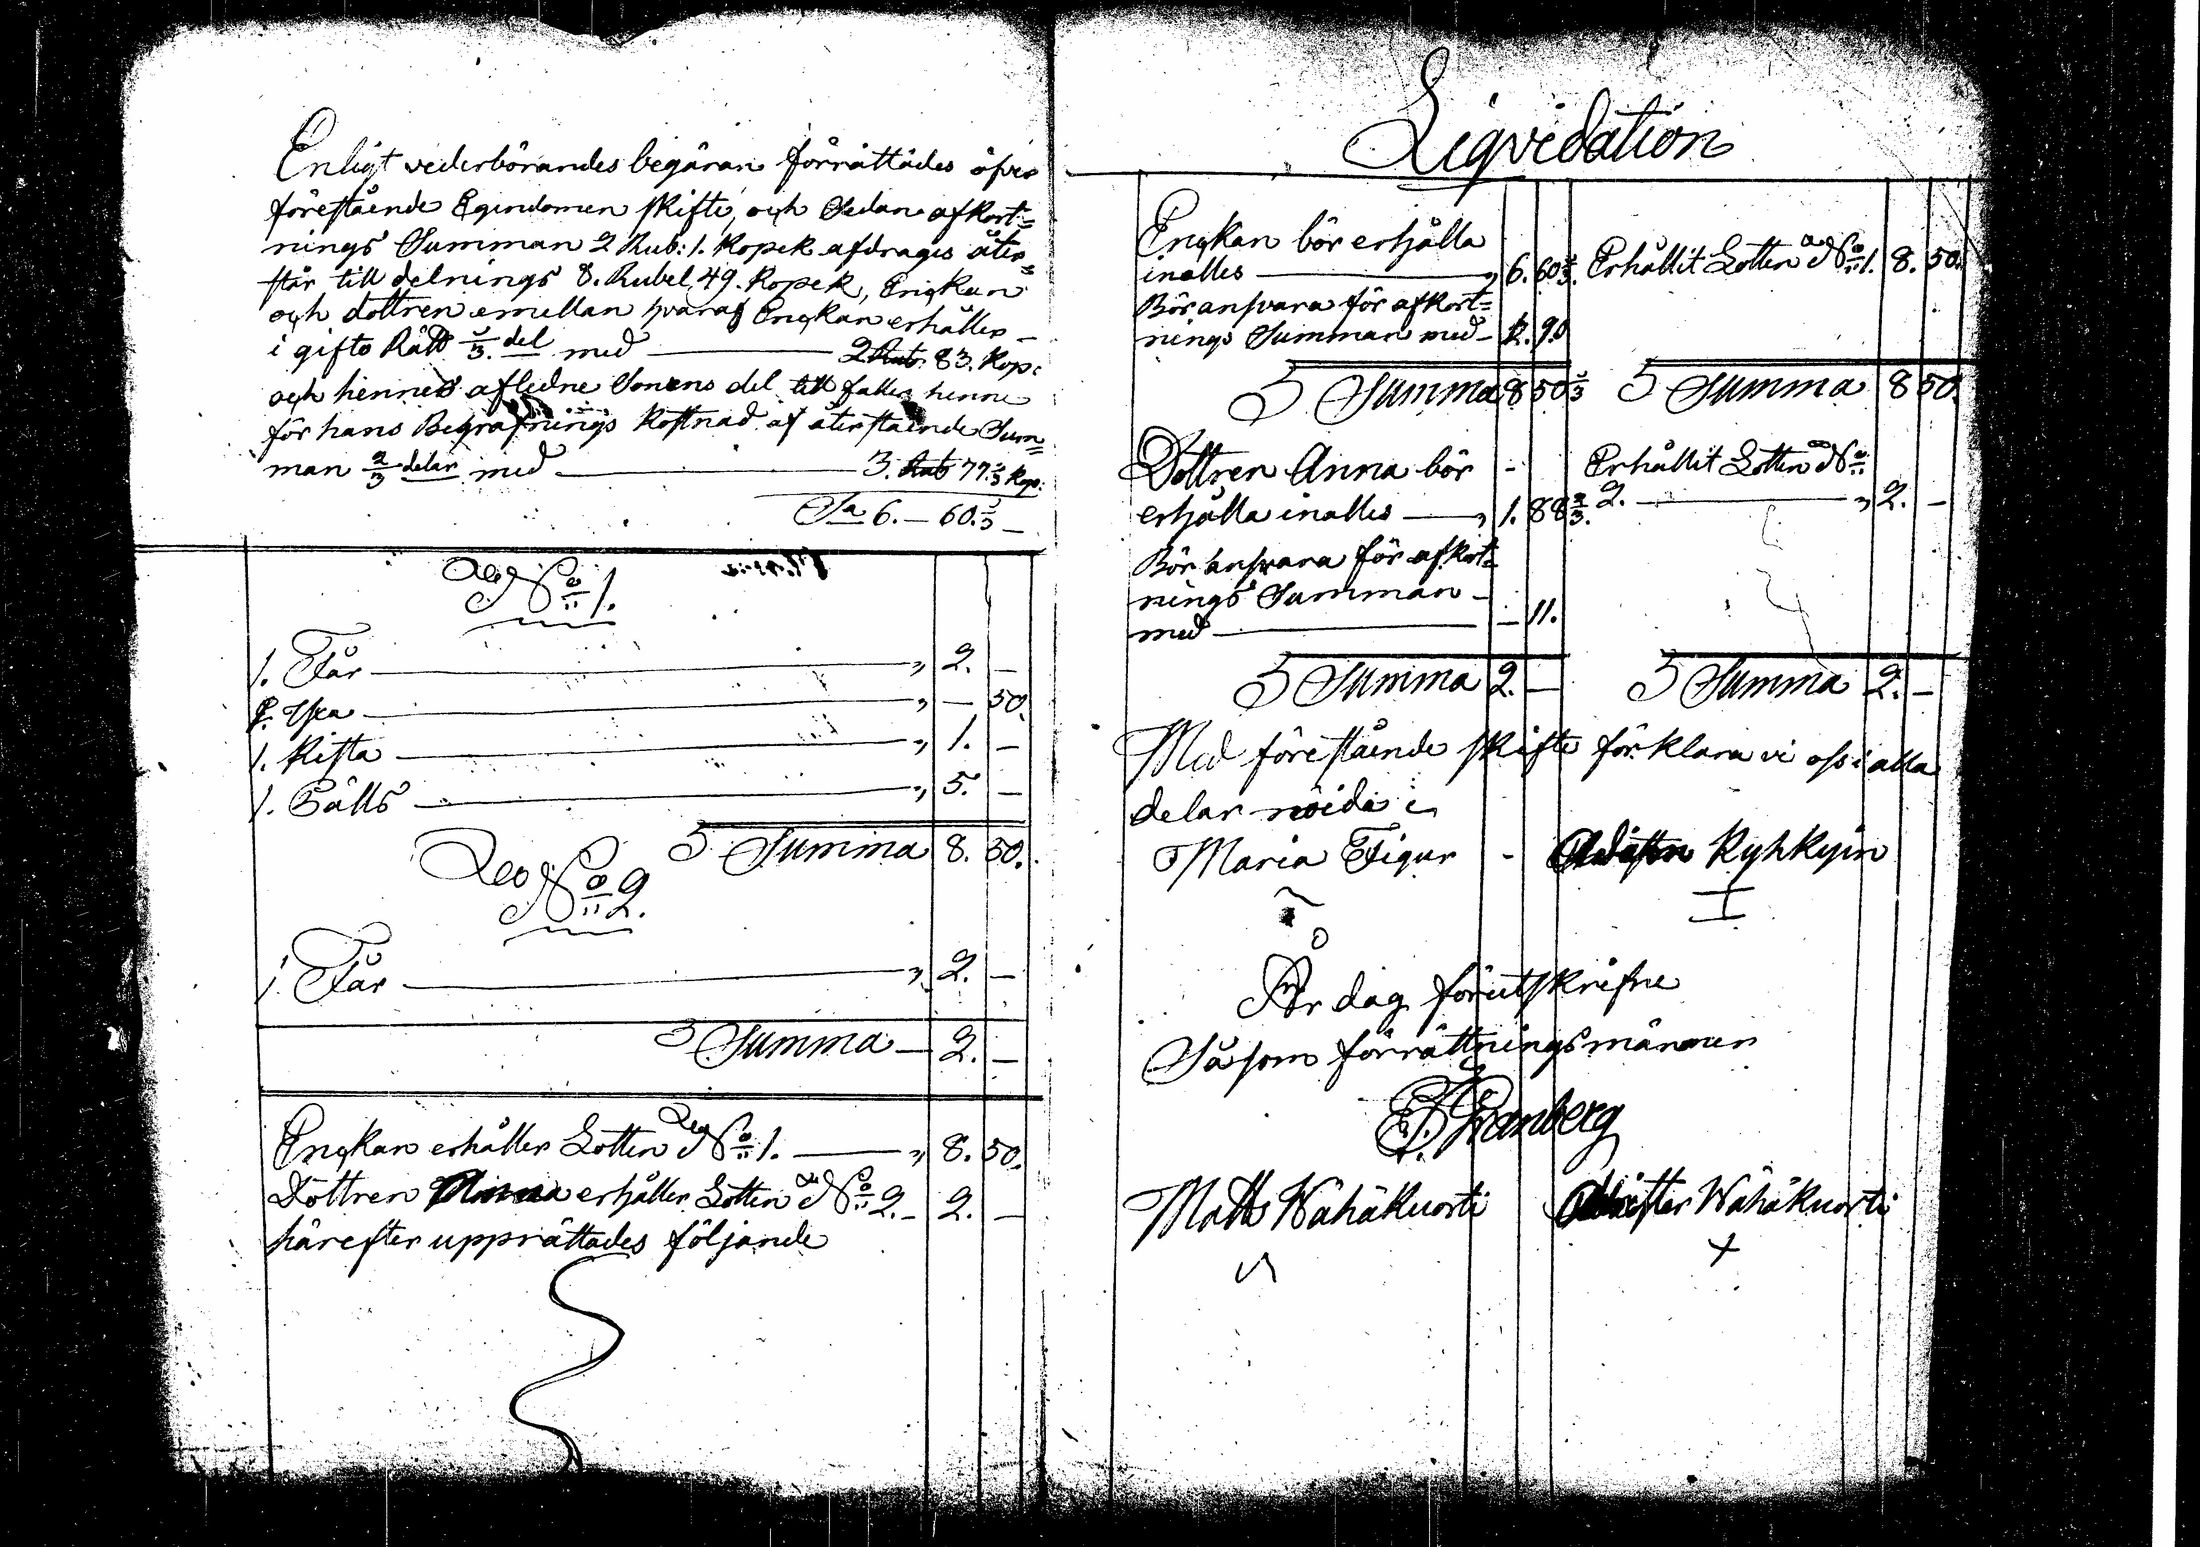 Enligt vederbörandes begäran förrättades öfver
förestående Egendomen skifte, och Sedan afkort=
nings Summan 2 Rub: 1. Kopek afdrages åter=
står till delnings 8. Rubel, 49. Kopek, Enkan
och dottren emellan hvaraf Enkan erhåller
i gifto Rätt 1/3. del med — 2 Rub. 83. Kop:
och hennes afledne Sonens del till faller henne
för hans Begrafnings Kostnad af återstående Sum=
man 2/3 delar med — 3. Rub 77.1/3 Kop:
Sa 6. — 60.1/3 —
No 1.
1. Får — " 2. —
1. Yxa — " — 50.
1. Rista — " 1. —
1. Bälts — " 5. —
Summa 8. 50.
No 2.
1 Får — " 2. —
Summa — 2. —
Enkan erhåller Lotten No 1. — " 8. 50.
Dottren Anna erhåller Lotten No 2. — 2. —
härefter upprättades följande
Liqvidation
Enkan bör erhjålla
inalles — " 6. 60 1/3. Erhållit Lotten No 1. 8. 50.
Bör ansvara för afkort=
nings Summan med — 1. 90
Summa 8 50 1/3 Summa 8 50.
Dottren Anna bör Erhållit Lotten No
erhjålla inalles — " 1. 88 2/3. 2. — " 2. —
Bör ansvara för afkort=
nings Summan —
med — — 11.
Summa 2. — Summa 2. —
Med förestående skifte förklara vi oss i alla
delar nöida
Maria Figur Kyhkyin
År dag förutskrifne
Såsom förrättningsmänner
Granberg
Matts Wähäkuorti Wähäkuorti